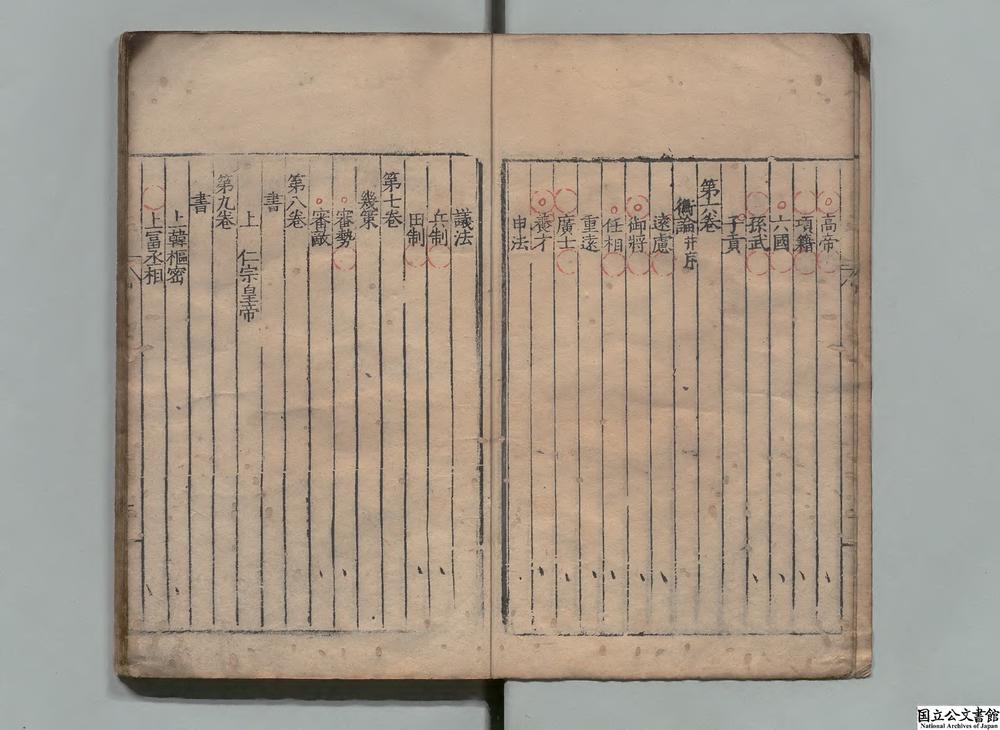 高帝
項籍
六國
孫武
子貢
第六卷
衡論并序
遠慮
御將
任相
重遠
廣士
養才
申法
議法
兵制
田制
第七卷
幾策
審勢
審敵
第八卷
書
上 仁宗皇帝
第九卷
書
上韓樞密
上富丞相
国立公文書館
National Archives of Japan